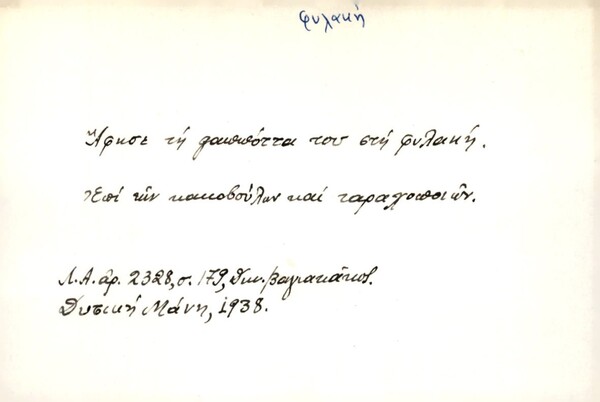 φυλακή
Ἄφησε τή γαμπόττα του στή φυλακή.
Ἐπί τῶν κακοβούλων καί ταραχοποιῶν.
Λ.Α. ἀρ. 2328, σ. 179, Δικ. Βαγιακάκος.
Δυτική Μάνη, 1938.